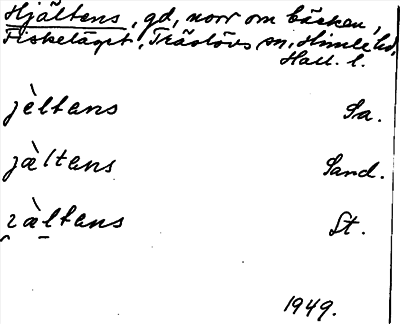 Hjältens, gd, norr om bäcken,
Fiskeläget, Träslövs sn, Himle hd,
Hall. l.
jèltens Sa.
jàltens Sand.
ɪ̯àl̠tens St.
1949.